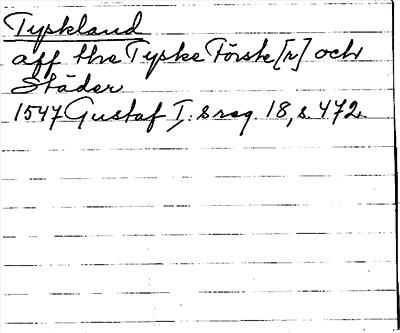 Tyskland
aff thre Tyske Förste[r] och
Städer
1547 Gustaf I:s reg. 18, s. 472.